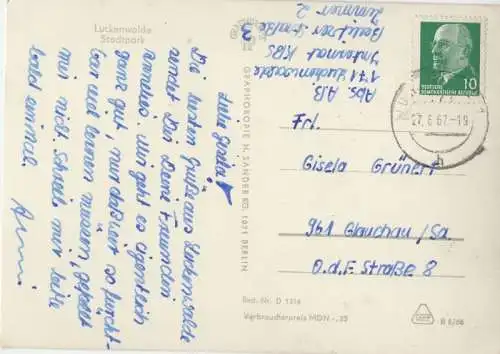 Luckenwalde
Stadtpark
Liebe Gisela!
Die besten Grüße aus Luckenwalde
sendet Dir Deine Freundin
Annemie. Mir geht es eigentlich
ganz gut, nur daß wir so furcht-
bar viel lernen müssen, gefällt
mir nicht. Schreib mir bitte
bald einmal.
Anni
GRAPHOKOPIE H. SANDER KG, 1071 BERLIN
Abs. AB
171 Luckenwalde
Internat KBS
Beelitzer Straße 3
Zimmer 2
10
DEUTSCHE
DEMOKRATISCHE REPUBLIK
27.6.67-19
Frl.
Gisela Grünert
961 Glauchau/Sa.
O.d.F. Straße 8
Best.-Nr. D 1316
Verbraucherpreis MDN -,25
B 6/66